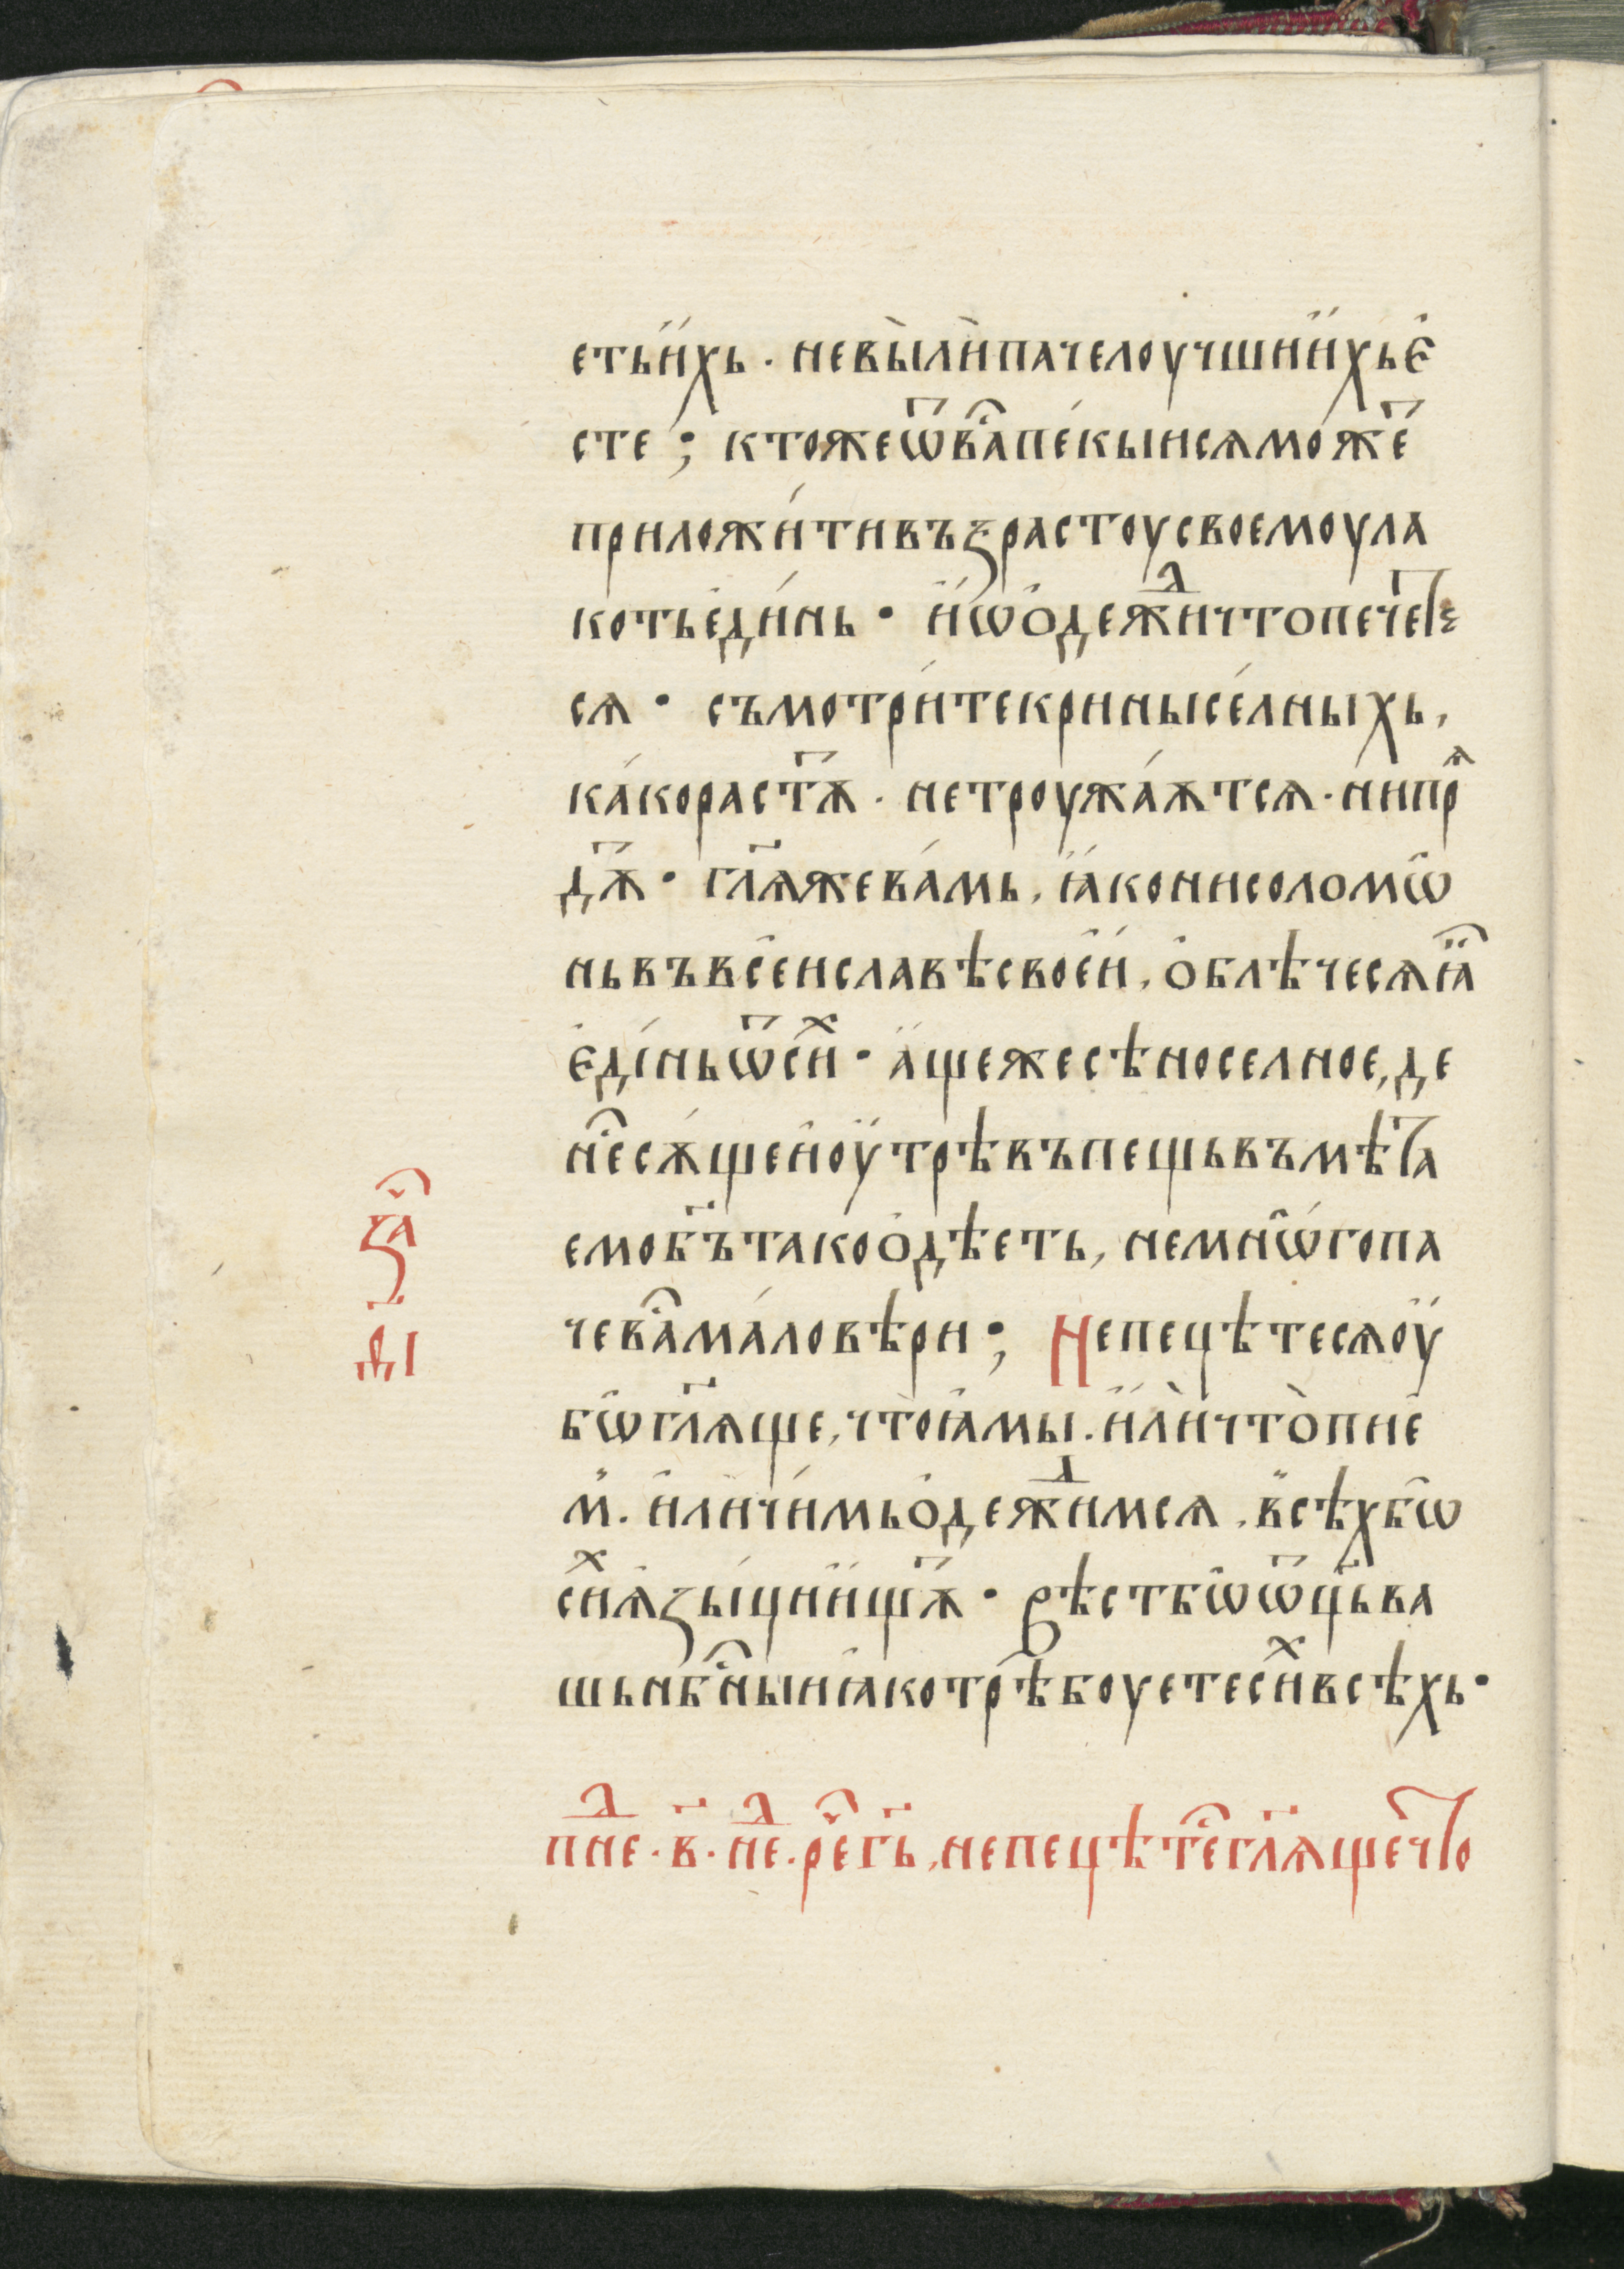 етьи҆́хь · невы̀лѝпачелоучшїи́хье҆
сте ; ктожеѿва̑пе́кыисѧмо́жеⷮ
приложи́тивъзрастоусвоемоула
котьедѝнь · и҆́ѡ҆о҆дежⷣичтопечеⷮ
сѧ · съмотри́текринысе́лныхь ,
ка́корастѫⷮ · нетроужа́ѫтсѧ · нипрѧ
дѫⷮ · гл҃ѧжева́мь , ꙗ҆́конисоломѡ̑
ньвъвсе́иславѣсвое́и , о҆блѣчесѧꙗ҆̑
е҆ди́ньѿси́ⷯ · а҆́щежесѣноселное , де
не̑сѫ́щеи҆оу҆́трѣвъпещьвъмѣта
емоб҃ътакоо҆дѣеть , немнѡ́гопа
чева̑ма́ловѣри ; Непецѣтесѧоу҆
бѡгл҃ѧще , что̀ꙗ҆мы · и҆лѝчто̀пїе
м҆ · и҆личи́мьо҆дежⷣимсѧ , всѣхбѡ
сиⷯѧ҆зы́циищѫⷮ · вѣстбѡѿц҃ьва
шьнб҃ныиꙗ҆котрѣбоуетесиⷯвсѣхь ·
за̑
д҃і
пнеⷣ · в҃ · неⷣ · ре̑г҃ь , непецѣте̑гл҃ѧщечто